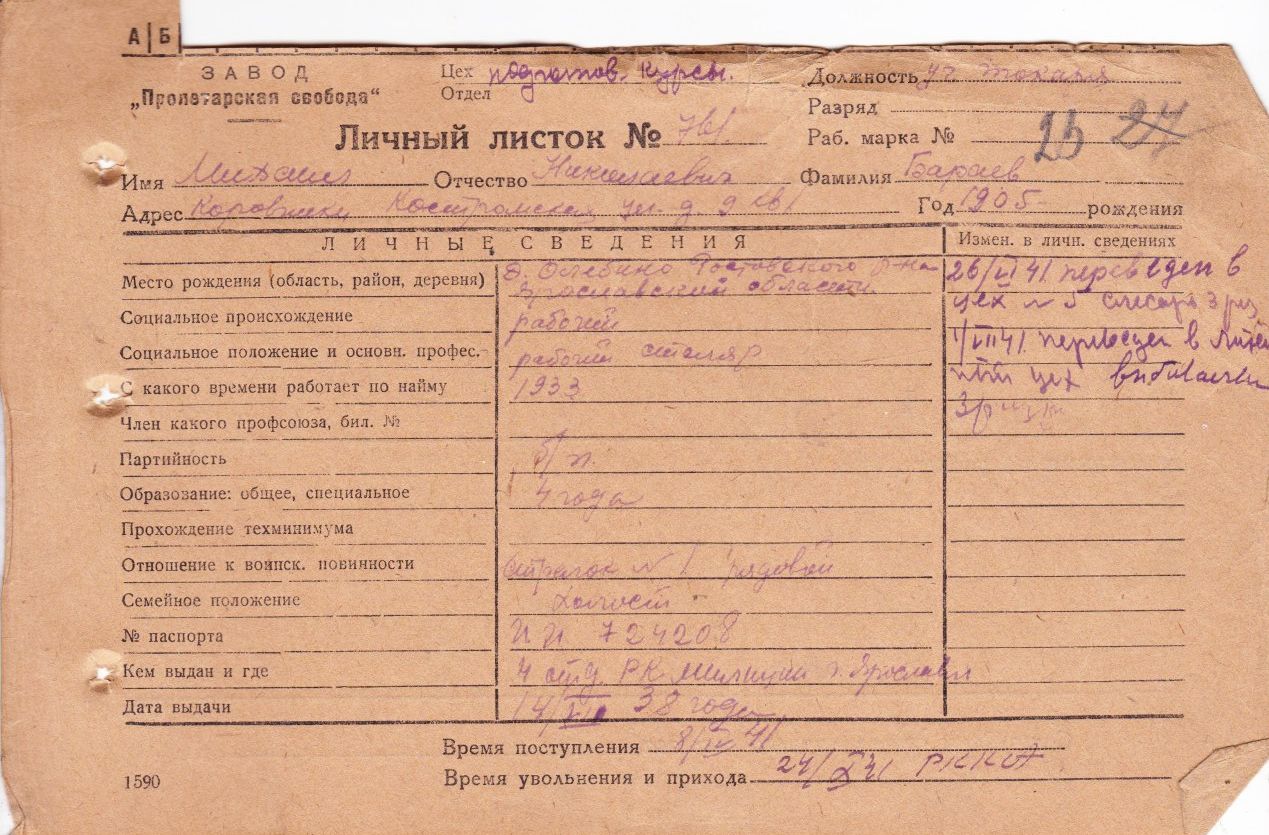 А|Б
ЗАВОД
„Пролетарская свобода“
Цех подготов. курсы.
Отдел
Должность уч токаря
Разряд
Личный листок № 761.
Раб. марка № 25 24
Имя Михаил Отчество Николаевич Фамилия Бараев
Адрес Коровники Костромская ул. д. 9 кв 1 Год 1905 рождения
ЛИЧНЫЕ СВЕДЕНИЯ Измен. в личн. сведениях
Место рождения (область, район, деревня) д. Ростовского р-на Ярославской области
26/VI 41 переведен в
Социальное происхождение рабочий
цех № 5 слесарь 3 раз.
Социальное положение и основн. профес. рабочий столяр
1/VIII 41 переведен в
С какого времени работает по найму 1933
цех
Член какого профсоюза, бил. №
3
Партийность б/п.
Образование: общее, специальное 4 года
Прохождение техминимума
Отношение к воинск. повинности стрелок № 1 рядовой
Семейное положение холост
№ паспорта 724208
Кем выдан и где 4 отд. РК Милиции г. Ярославля
Дата выдачи 38 года
Время поступления 8/IV 41
Время увольнения и прихода 24/X 41 РККА
1590